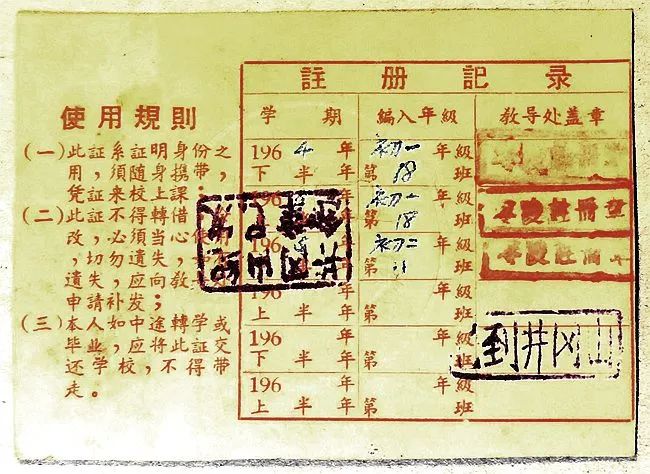 使用規則
(一)此証系証明身份之
用,須隨身携帶,
凭証来校上課;
(二)此証不得轉借
改,必須当心
切勿遺失
遺失,应向教
申請补发;
(三)本人如中途轉学或
毕业,应将此証交
还学校,不得带
走。
註册記录
学期 編入年級 教导处盖章
1964年 初一年級
下半年 第18班
初一年級
第18班
零陵註冊章
初二年級
第11班
零陵註冊章
196 年 年級
上半年 第 班
到井冈山
196 年 年級
下半年 第 班
196 年 年級
上半年 第 班